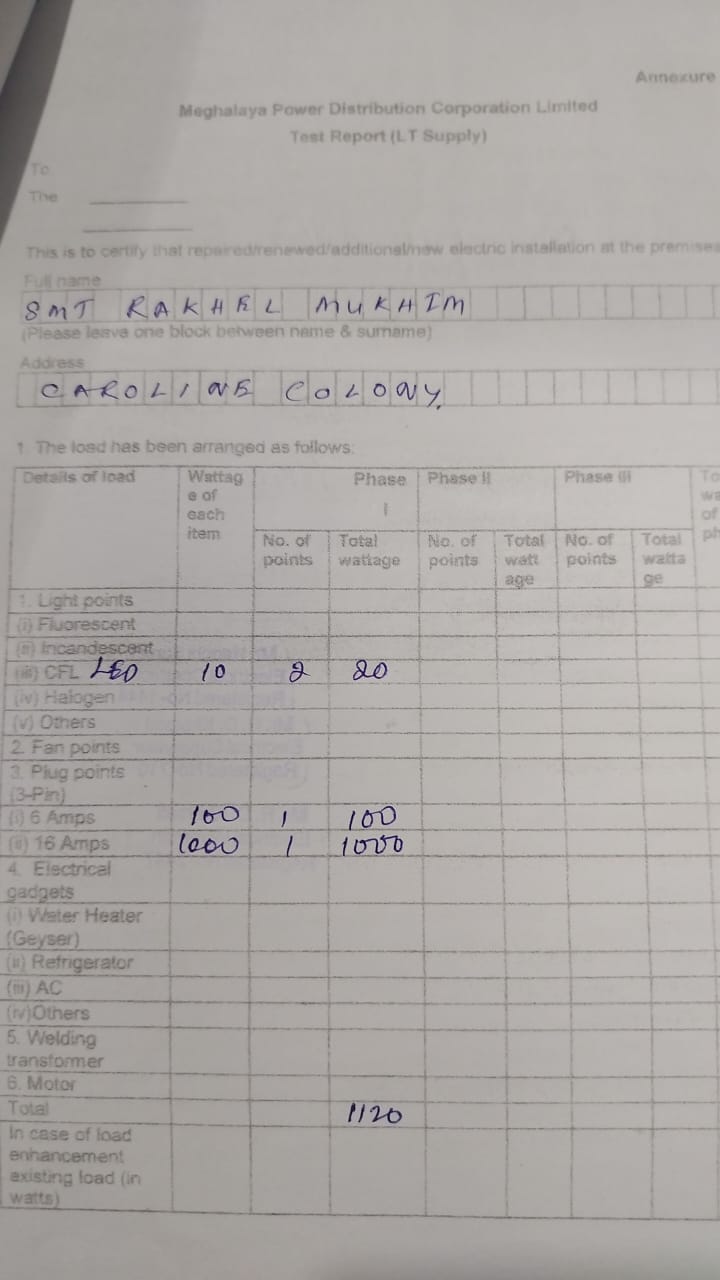 Annexure
Meghalaya Power Distribution Corporation Limited
Test Report (LT Supply)
To
The
This is to certify that repaired/renewed/additional/new electric installation at the premises
Full name
SMT RAKHEL MUKHIM
(Please leave one block between name & surname)
Address
CAROLINE COLONY
1. The load has been arranged as follows:
Details of load Wattag e of each item Phase I Phase II Phase III
No. of points Total wattage No. of points Total watt age No. of points Total watta ge
1. Light points
(i) Fluorescent
(ii) Incandescent
(iii) CFL LED 10 2 20
(iv) Halogen
(v) Others
2. Fan points
3. Plug points
(3-Pin)
(i) 6 Amps 100 1 100
(ii) 16 Amps 1000 1 1000
4. Electrical
gadgets
(i) Water Heater
(Geyser)
(ii) Refrigerator
(iii) AC
(iv)Others
5. Welding
transformer
6. Motor
Total 1120
In case of load
enhancement
existing load (in
watts)